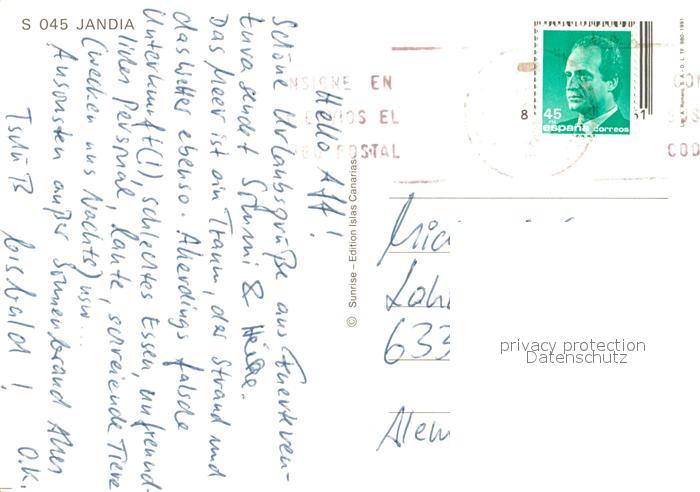 S 045 JANDIA
Hallo Aff!
Schöne Urlaubsgrüße aus Fuerteven-
tura sendet Strunni & Heike.
Das Meer ist ein Traum, der Strand und
das Wetter ebenso. Allerdings falsche
Unterkunft(!), schlechtes Essen, unfreund-
liches Personal, laute, schreiende Tiere
(wecken uns Nachts) usw...
Ansonsten außer Sonnenbrand Alles
O.K.
Tschüß bisbald!
© Sunrise - Edition Islas Canarias
NSIGNE EN
OS EL
POSTAL
COD
8
45
PTA
españa correos
Mic
Lah
633
Alem
privacy protection
Datenschutz